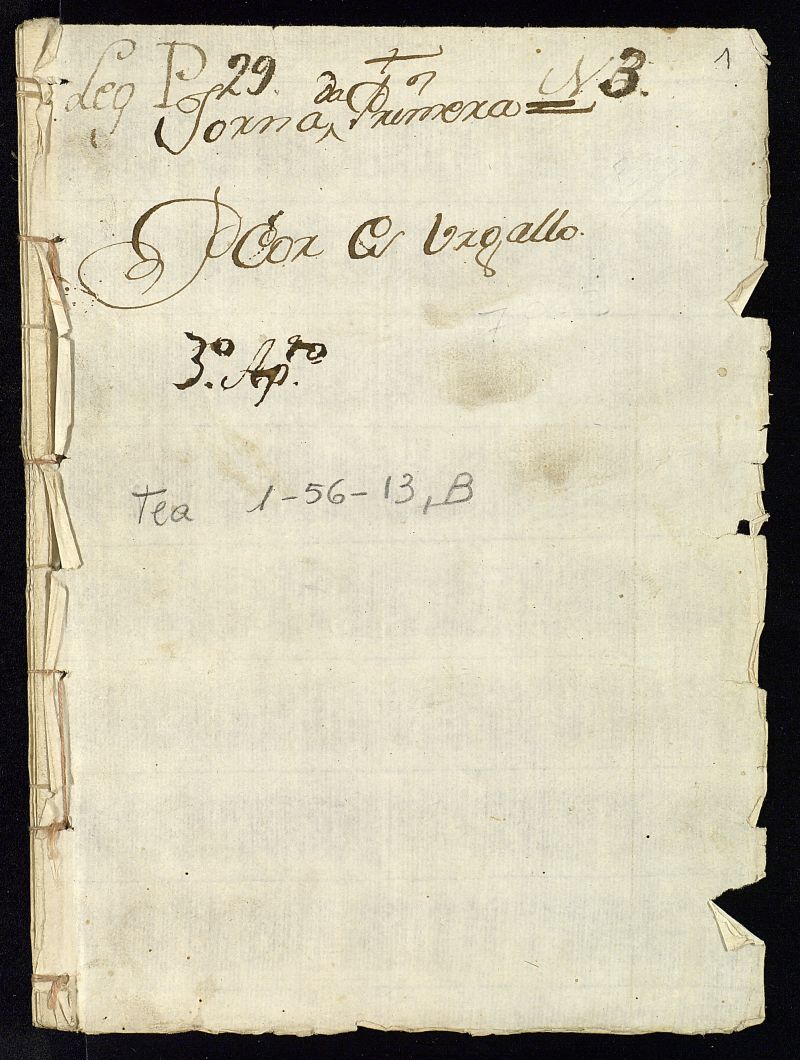 1
Leg P 29. N 3.
Jornada Primera =
Peor Es Urgallo.
3.º Ap.to
Tea 1-56-13, B